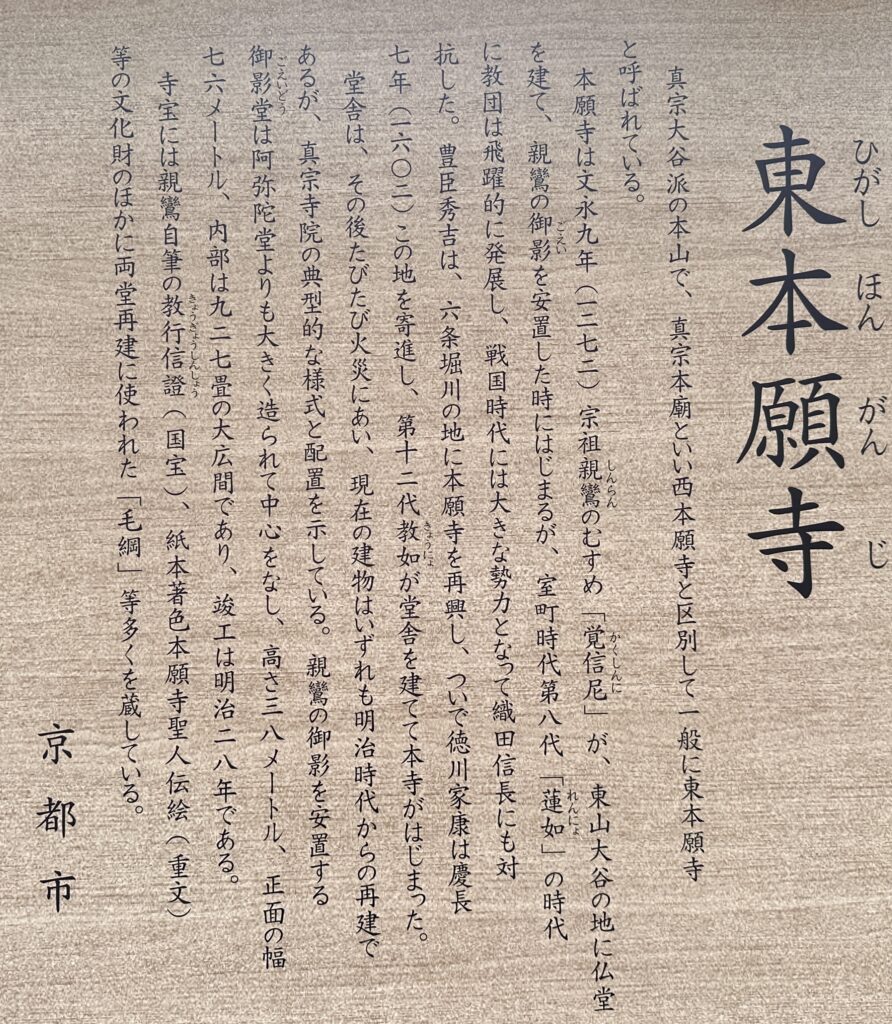 東本願寺
ひがし ほん がん じ
真宗大谷派の本山で、真宗本廟といい西本願寺と区別して一般に東本願寺
と呼ばれている。
本願寺は文永九年（一二七二）宗祖親鸞のむすめ「覚信尼」が、東山大谷の地に仏堂
しんらん かくしんに
を建て、親鸞の御影を安置した時にはじまるが、室町時代第八代「蓮如」の時代
ごえい れんにょ
に教団は飛躍的に発展し、戦国時代には大きな勢力となって織田信長にも対
抗した。豊臣秀吉は、六条堀川の地に本願寺を再興し、ついで徳川家康は慶長
七年（一六〇二）この地を寄進し、第十二代教如が堂舎を建てて本寺がはじまった。
きょうにょ
堂舎は、その後たびたび火災にあい、現在の建物はいずれも明治時代からの再建で
あるが、真宗寺院の典型的な様式と配置を示している。親鸞の御影を安置する
御影堂は阿弥陀堂よりも大きく造られて中心をなし、高さ三八メートル、正面の幅
ごえいどう
七六メートル、内部は九二七畳の大広間であり、竣工は明治二八年である。
寺宝には親鸞自筆の教行信證（国宝）、紙本著色本願寺聖人伝絵（重文）
きょうぎょうしんしょう
等の文化財のほかに両堂再建に使われた「毛綱」等多くを蔵している。
京都市